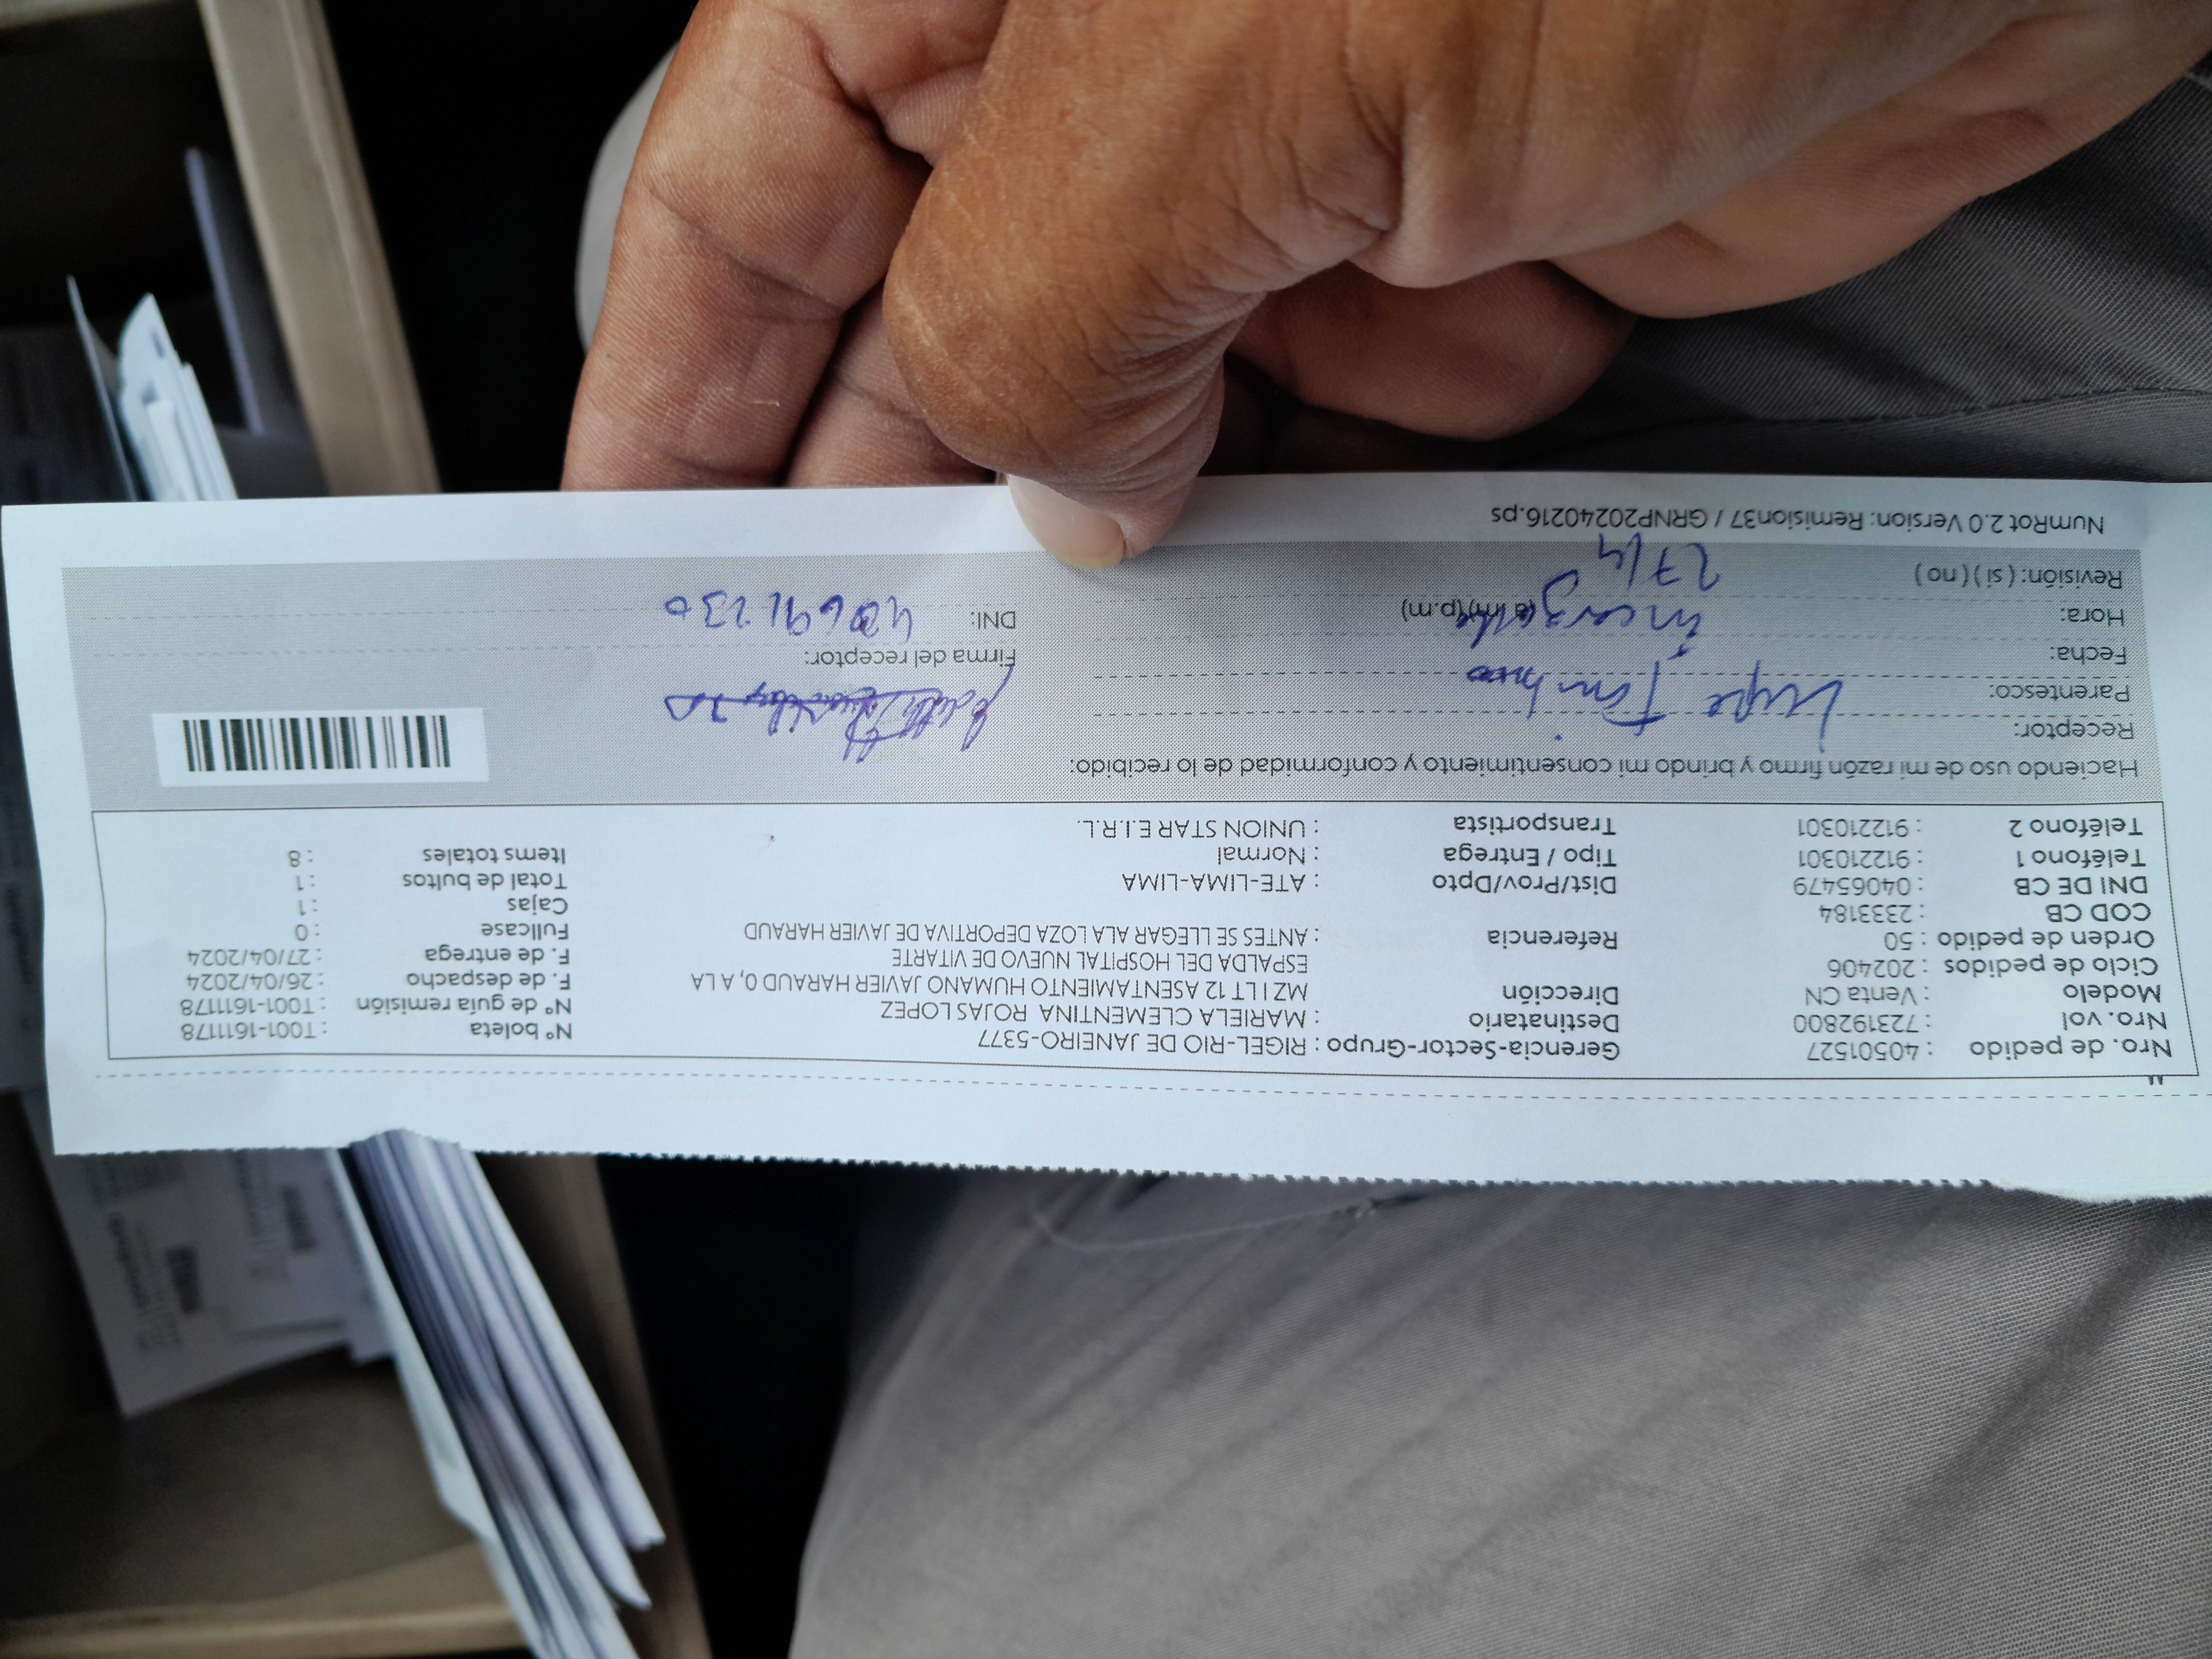 Nro. de pedido : 40501527
Nro. vol : 723192800
Modelo : Venta CN
Ciclo de pedidos : 202406
Orden de pedido : 50
COD CB : 2333184
DNI DE CB : 04065479
Teléfono 1 : 912210301
Teléfono 2 : 912210301
Gerencia-Sector-Grupo : RIGEL-RIO DE JANEIRO-5377
Destinatario : MARIELA CLEMENTINA ROJAS LOPEZ
Dirección MZ I LT 12 ASENTAMIENTO HUMANO JAVIER HARAUD 0, A LA
ESPALDA DEL HOSPITAL NUEVO DE VITARTE
Referencia : ANTES SE LLEGAR ALA LOZA DEPORTIVA DE JAVIER HARAUD
Dist/Prov/Dpto : ATE-LIMA-LIMA
Tipo / Entrega : Normal
Transportista : UNION STAR E.I.R.L.
N° boleta : T001-1611178
N° de guía remisión : T001-1611178
F. de despacho : 26/04/2024
F. de entrega : 27/04/2024
Fullcase : 0
Cajas : 1
Total de bultos : 1
Items totales : 8
Haciendo uso de mi razón firmo y brindo mi consentimiento y conformidad de lo recibido:
Receptor:
Parentesco:
Fecha:
Hora: (a.m)(p.m)
Revisión: ( si ) ( no ) 27/4
Firma del receptor:
DNI: 40691230
NumRot 2.0 Version: Remision37 / GRNP20240216.ps